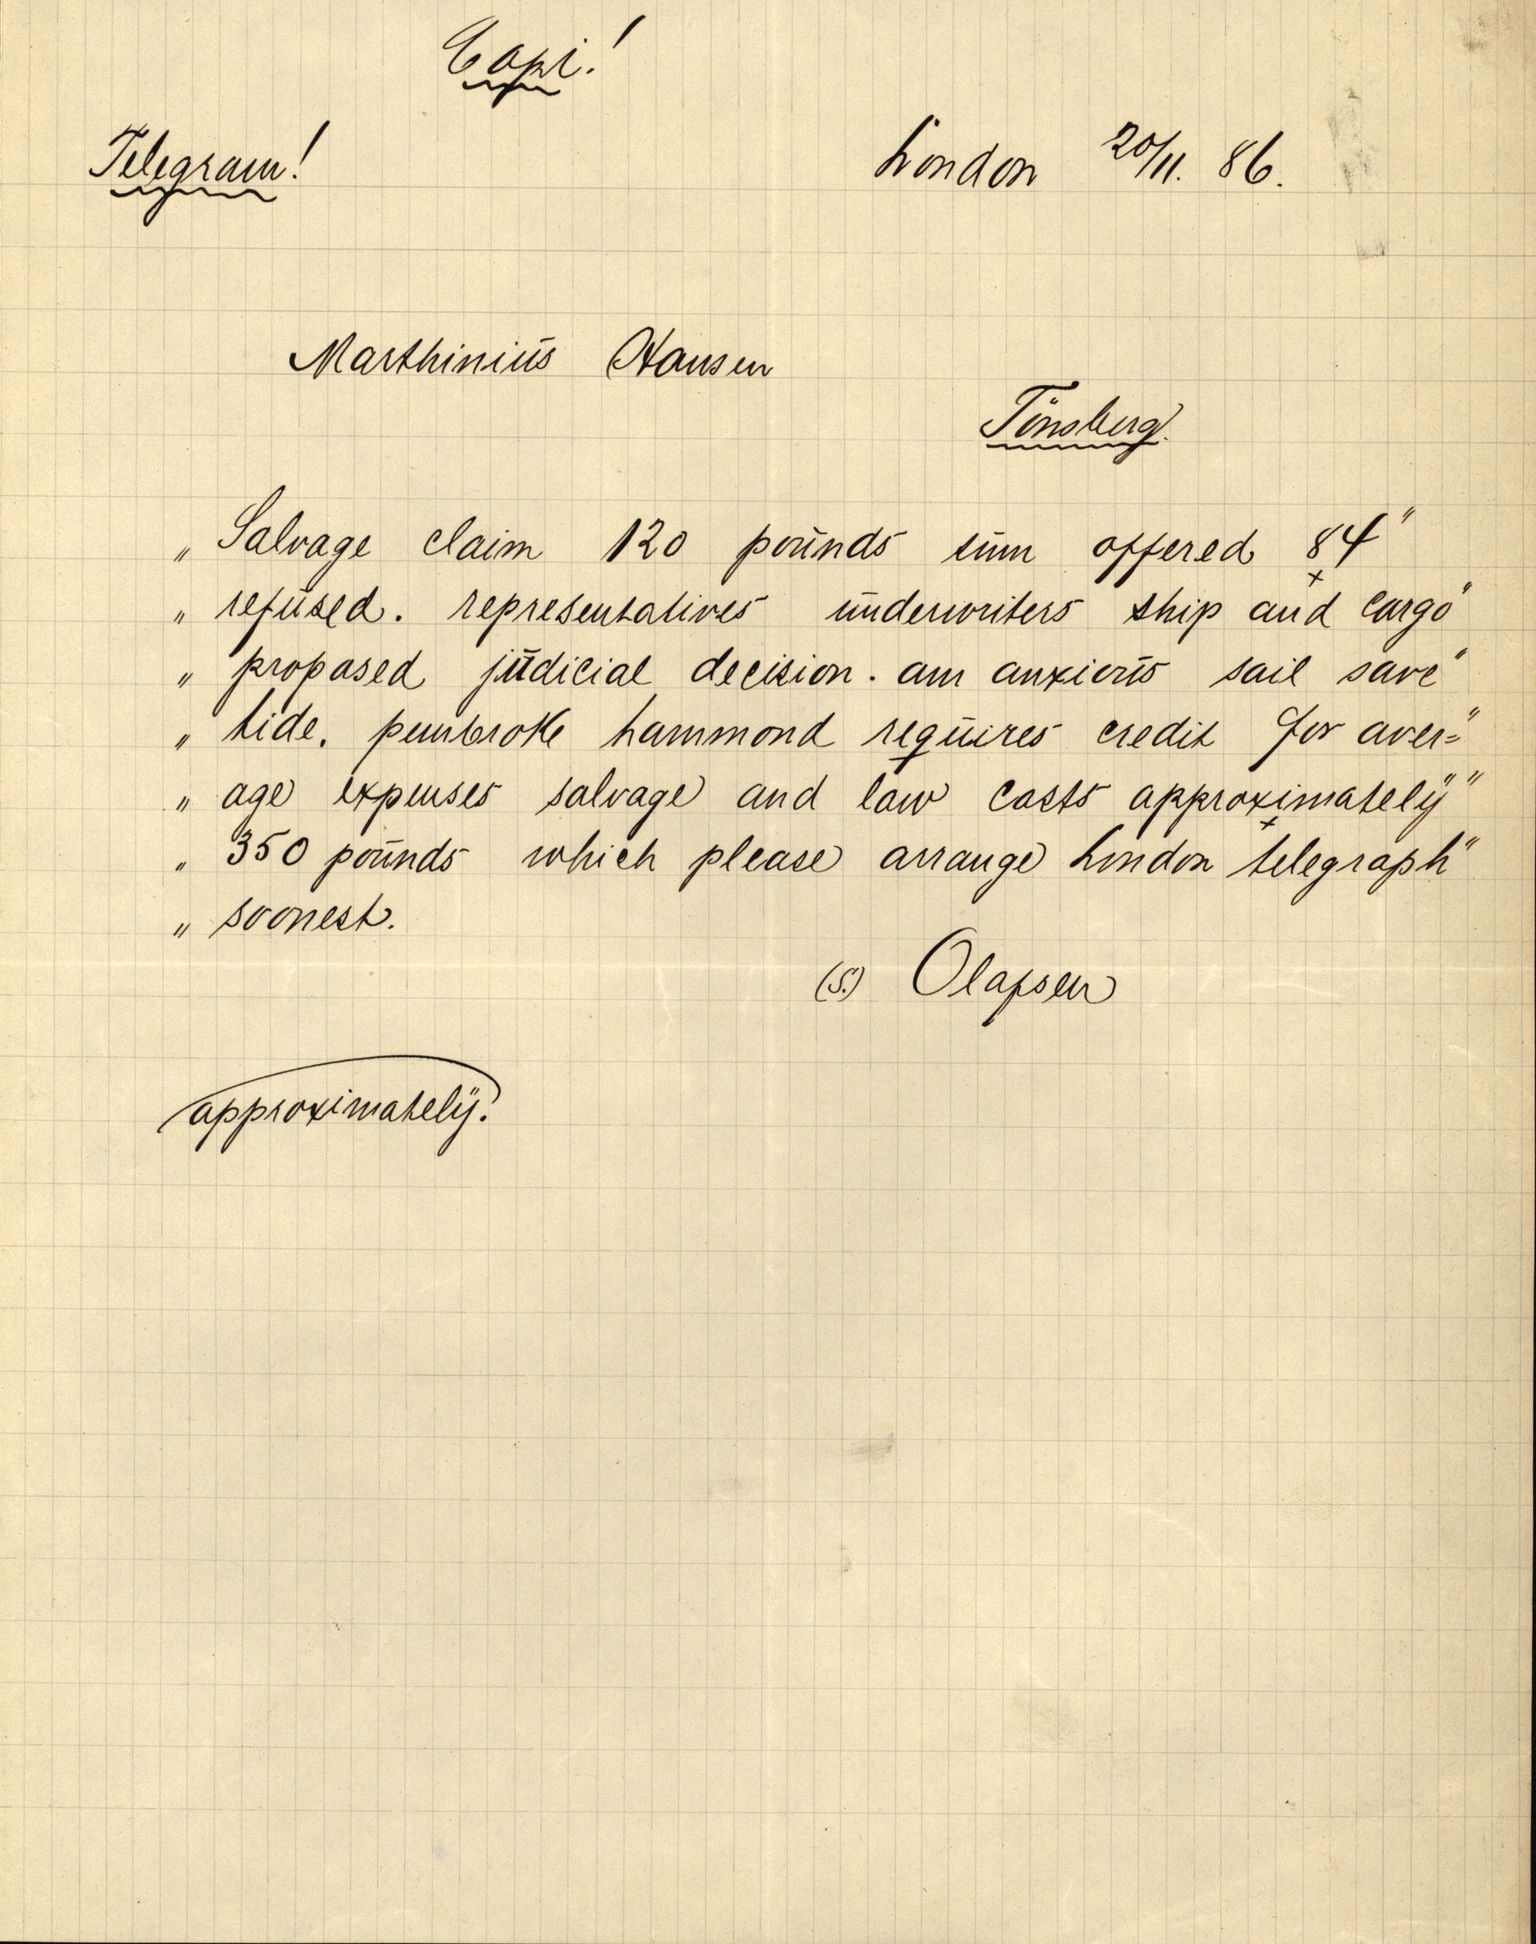 Copi!
Telegram!
London 20/11. 86.
Marthinius Hansen
Tönsberg.
" Salvage claim 120 pounds sum offered 84 "
" refused. representatives underwriters ship and cargo "
" proposed judicial decision. am anxious sail save "
" tide. pembroke hammond requires credit for aver= "
" age expenses salvage and law costs approximatelÿ "
" 350 pounds which please arrange London telegraph "
" soonest.
(S.) Olafsen
approximatelÿ.